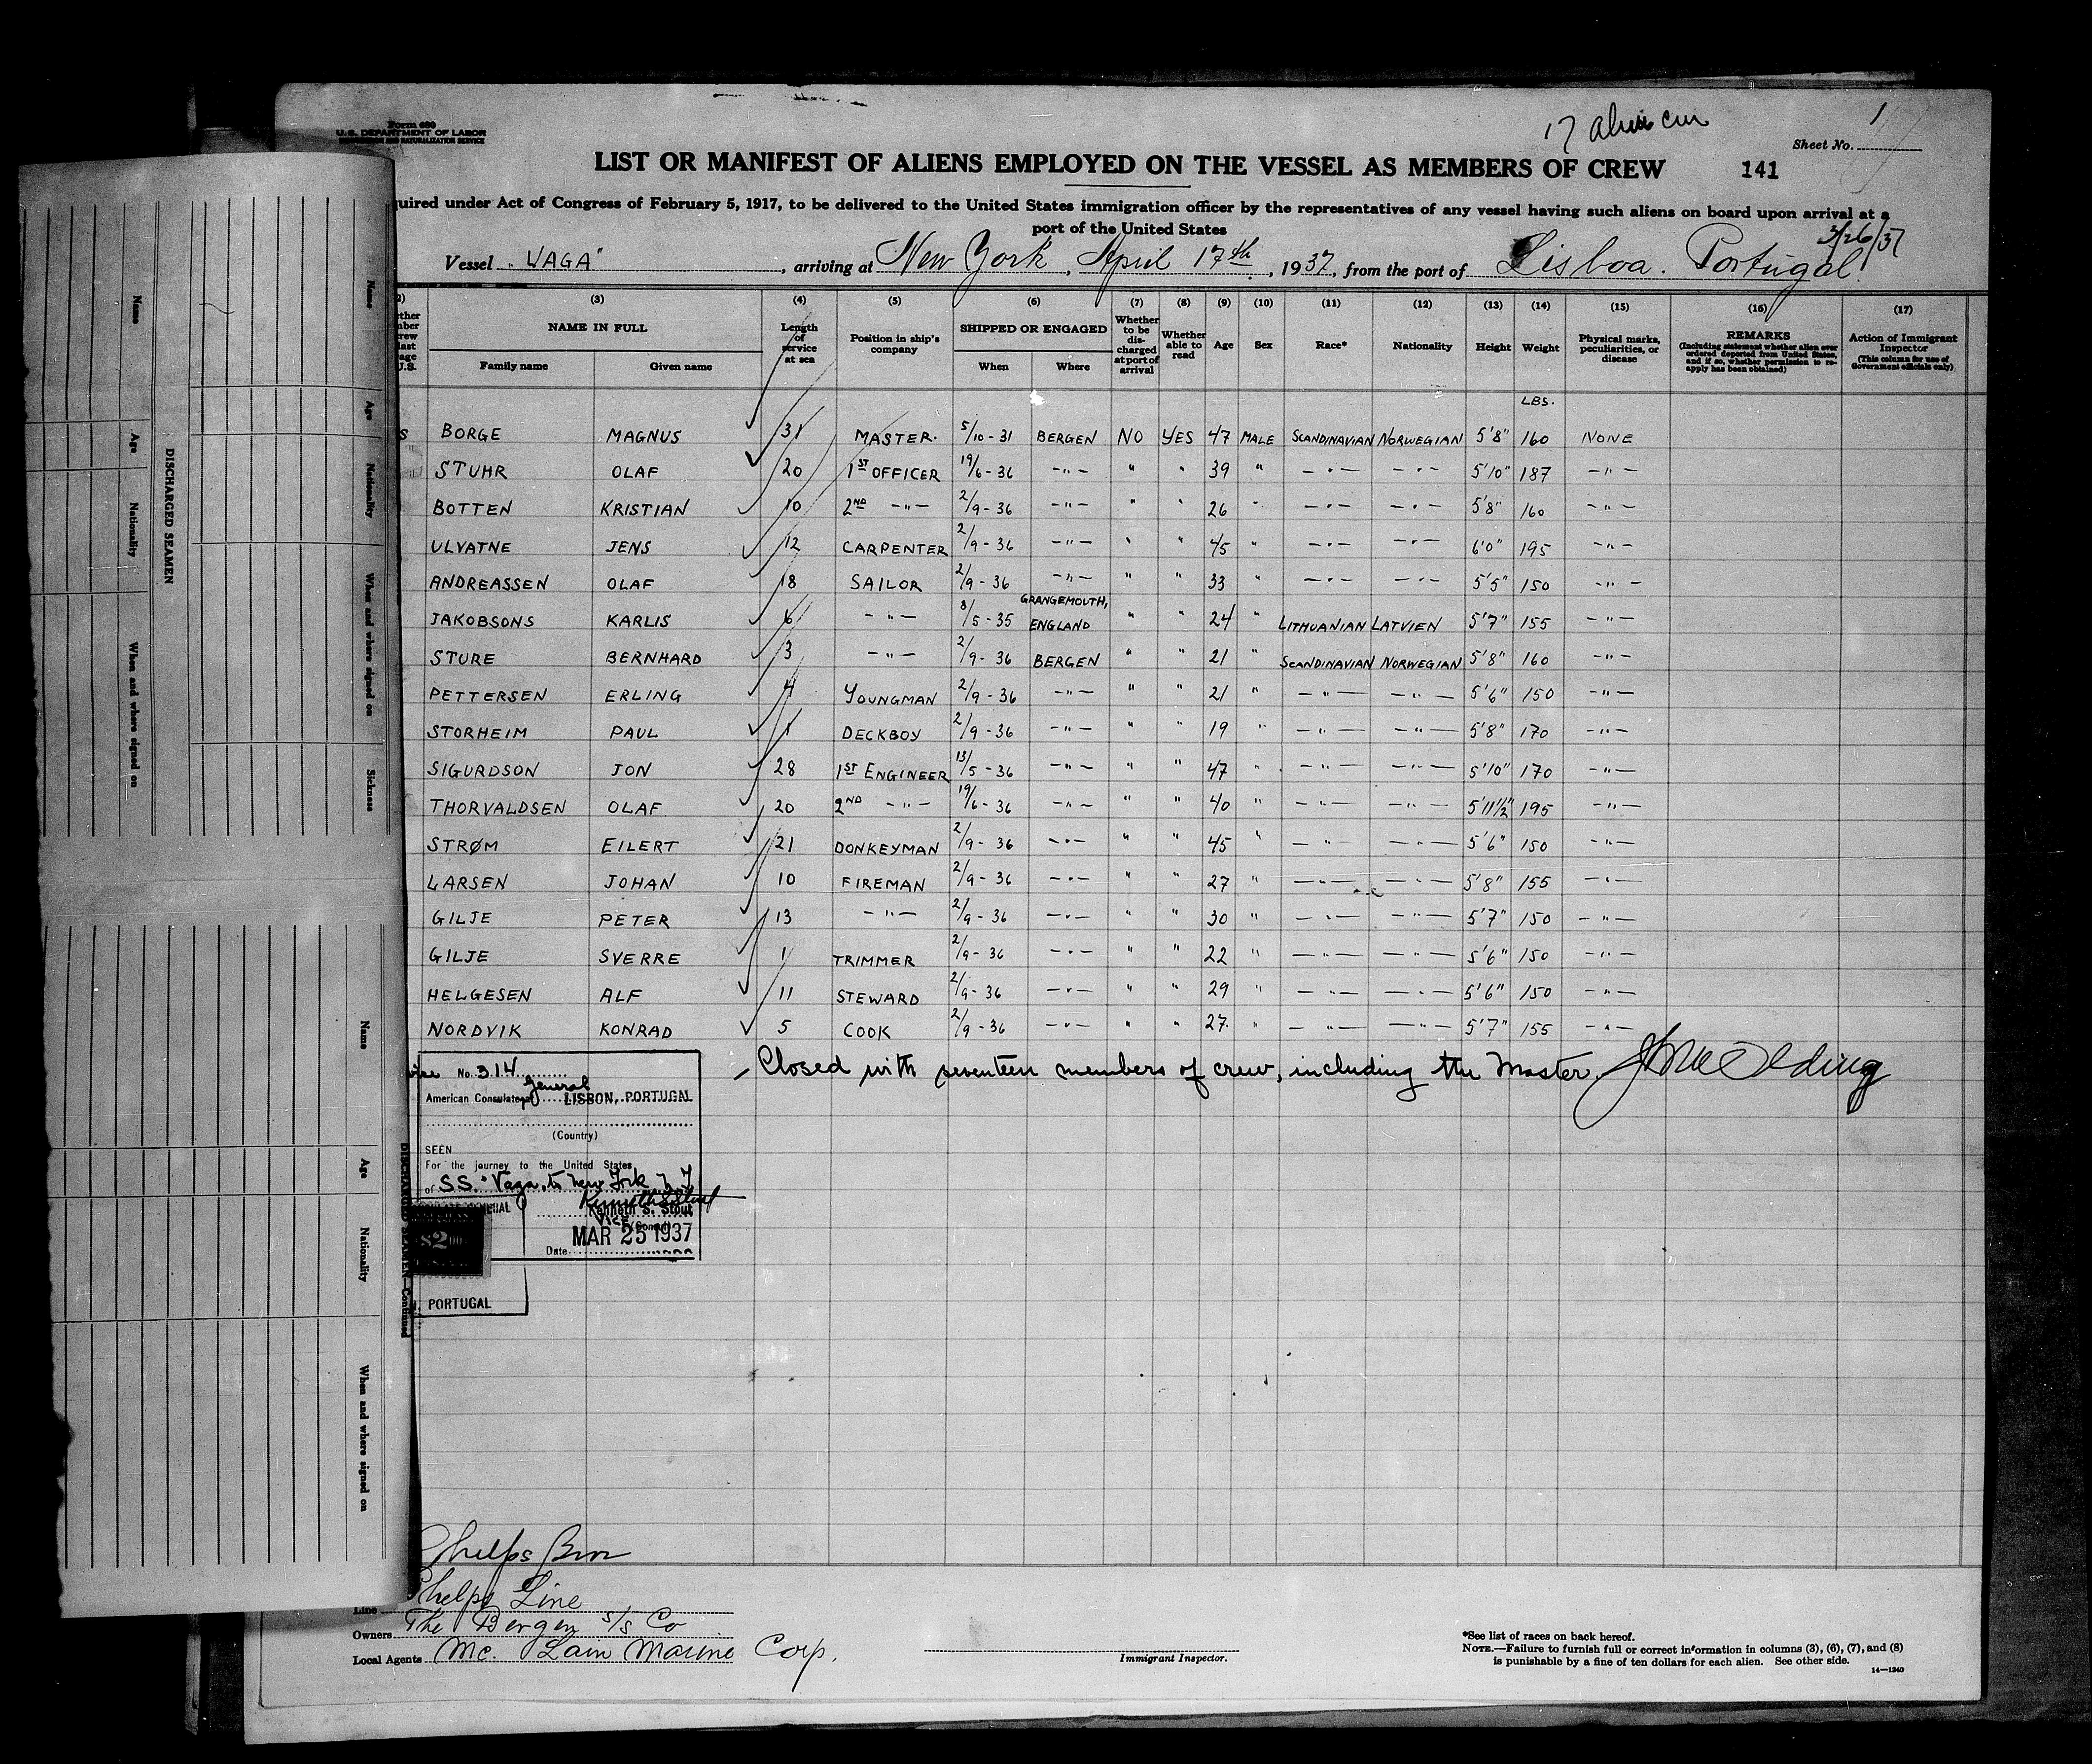 Form 680
U.S. DEPARTMENT OF LABOR
IMMIGRATION AND NATURALIZATION SERVICE
17 alien crew
Sheet No. 1
LIST OR MANIFEST OF ALIENS EMPLOYED ON THE VESSEL AS MEMBERS OF CREW 141
quired under Act of Congress of February 5, 1917, to be delivered to the United States immigration officer by the representatives of any vessel having such aliens on board upon arrival at a
port of the United States
3/26/37
Vessel "VAGA", arriving at New York, April 17th, 1937, from the port of Lisboa. Portugal.
(3) (4) (5) (6) (7) (8) (9) (10) (11) (12) (13) (14) (15) (16) (17)
NAME IN FULL
Family name Given name
Length of service at sea
Position in ship's company
SHIPPED OR ENGAGED
When Where
Whether to be discharged at port of arrival
Whether able to read
Age
Sex
Race*
Nationality
Height
Weight
Physical marks, peculiarities, or disease
REMARKS
(Including statement whether alien ever ordered deported from United States, and if so, whether permission to reapply has been obtained)
Action of Immigrant Inspector
(This column for use of Government officials only)
LBS.
S BORGE MAGNUS 31 MASTER. 5/10-31 BERGEN NO YES 47 MALE SCANDINAVIAN NORWEGIAN 5'8" 160 NONE
STUHR OLAF 20 1ST OFFICER 19/6-36 -"- " " 39 " -"- -"- 5'10" 187 -"-
BOTTEN KRISTIAN 10 2ND -"- 2/9-36 -"- " " 26 " -"- -"- 5'8" 160 -"-
ULVATNE JENS 12 CARPENTER 2/9-36 -"- " " 45 " -"- -"- 6'0" 195 -"-
ANDREASSEN OLAF 18 SAILOR 2/9-36 -"- " " 33 " -"- -"- 5'5" 150 -"-
JAKOBSONS KARLIS 6 -"- 8/5-35 GRANGEMOUTH, ENGLAND " " 24 " LITHUANIAN LATVIEN 5'7" 155 -"-
STURE BERNHARD 3 -"- 2/9-36 BERGEN " " 21 " SCANDINAVIAN NORWEGIAN 5'8" 160 -"-
PETTERSEN ERLING 4 YOUNGMAN 2/9-36 -"- " " 21 " -"- -"- 5'6" 150 -"-
STORHEIM PAUL 1 DECKBOY 2/9-36 -"- " " 19 " -"- -"- 5'8" 170 -"-
SIGURDSON JON 28 1ST ENGINEER 13/5-36 -"- " " 47 " -"- -"- 5'10" 170 -"-
THORVALDSEN OLAF 20 2ND -"- 19/6-36 -"- " " 40 " -"- -"- 5'11½" 195 -"-
STRØM EILERT 21 DONKEYMAN 2/9-36 -"- " " 45 " -"- -"- 5'6" 150 -"-
LARSEN JOHAN 10 FIREMAN 2/9-36 -"- " " 27 " -"- -"- 5'8" 155 -"-
GILJE PETER 13 -"- 2/9-36 -"- " " 30 " -"- -"- 5'7" 150 -"-
GILJE SVERRE 1 TRIMMER 2/9-36 -"- " " 22 " -"- -"- 5'6" 150 -"-
HELGESEN ALF 11 STEWARD 2/9-36 -"- " " 29 " -"- -"- 5'6" 150 -"-
NORDVIK KONRAD 5 COOK 2/9-36 -"- " " 27. " -"- -"- 5'7" 155 -"-
Closed with seventeen members of crew, including the Master.
No. 314
American Consulate General LISBON, PORTUGAL
(Country)
SEEN
For the journey to the United States
of SS. "Vaga" to New York N Y
Kenneth S. Stout
Vice (Consul)
Date MAR 25 1937
$2.00
PORTUGAL
Phelps Bros
Line Phelps Line
Owners The Bergen S/S Co
Local Agents Mc. Lain Marine Corp.
Immigrant Inspector.
*See list of races on back hereof.
NOTE.—Failure to furnish full or correct information in columns (3), (6), (7), and (8)
is punishable by a fine of ten dollars for each alien. See other side.
14—1240
DISCHARGED SEAMEN
Name
Age
Nationality
When and where signed on
Name
Age
Nationality
When and where signed on
Sickness
DISCHARGED SEAMEN—Continued
Name
Age
Nationality
When and where signed on